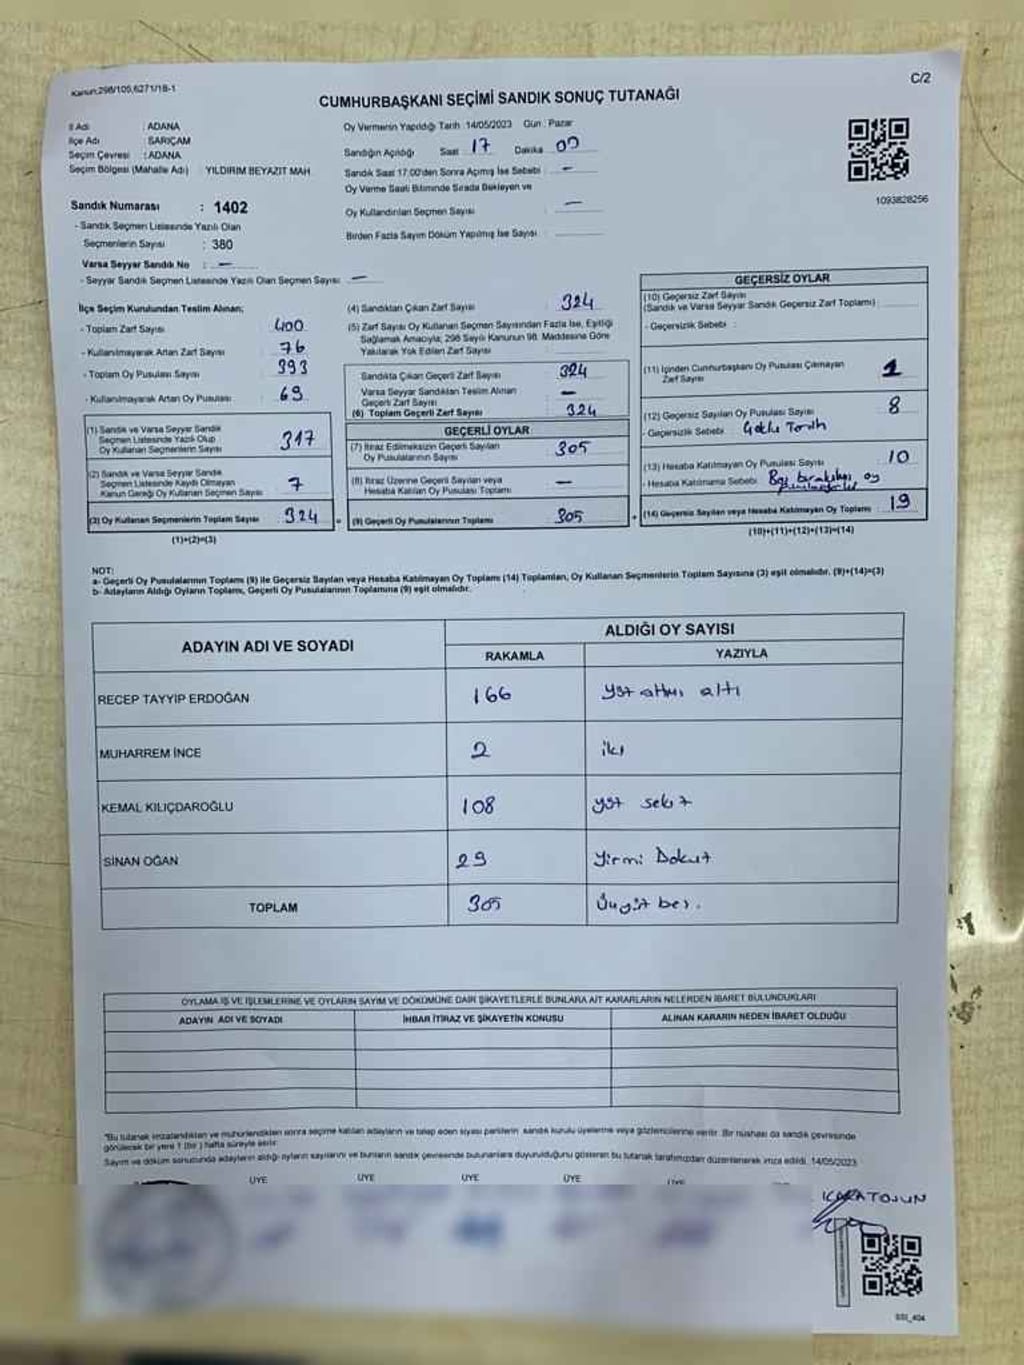 Kanun:298/105,6271/18-1
C/2
CUMHURBAŞKANI SEÇİMİ SANDIK SONUÇ TUTANAĞI
İl Adı : ADANA
İlçe Adı : SARIÇAM
Seçim Çevresi : ADANA
Seçim Bölgesi (Mahalle Adı) : YILDIRIM BEYAZIT MAH
Sandık Numarası : 1402
- Sandık Seçmen Listesinde Yazılı Olan
Seçmenlerin Sayısı : 380
Varsa Seyyar Sandık No : —
- Seyyar Sandık Seçmen Listesinde Yazılı Olan Seçmen Sayısı : —
Oy Vermenin Yapıldığı Tarih :14/05/2023 Gün : Pazar
Sandığın Açıldığı Saat 17 Dakika 00
Sandık Saat 17:00'den Sonra Açılmış İse Sebebi : —
Oy Verme Saati Bitiminde Sırada Bekleyen ve
Oy Kullandırılan Seçmen Sayısı : —
Birden Fazla Sayım Döküm Yapılmış İse Sayısı :
1093828256
İlçe Seçim Kurulundan Teslim Alınan;
- Toplam Zarf Sayısı : 400
- Kullanılmayarak Artan Zarf Sayısı : 76
- Toplam Oy Pusulası Sayısı : 393
- Kullanılmayarak Artan Oy Pusulası : 69
(1) Sandık ve Varsa Seyyar Sandık
Seçmen Listesinde Yazılı Olup
Oy Kullanan Seçmenlerin Sayısı 317
(2) Sandık ve Varsa Seyyar Sandık
Seçmen Listesinde Kaydı Olmayan
Kanun Gereği Oy Kullanan Seçmen Sayısı 7
(3) Oy Kullanan Seçmenlerin Toplam Sayısı 324
(1)+(2)=(3)
(4) Sandıktan Çıkan Zarf Sayısı : 324
(5) Zarf Sayısı Oy Kullanan Seçmen Sayısından Fazla İse, Eşitliği
Sağlamak Amacıyla; 298 Sayılı Kanunun 98. Maddesine Göre
Yakılarak Yok Edilen Zarf Sayısı :
Sandıkta Çıkan Geçerli Zarf Sayısı 324
Varsa Seyyar Sandıktan Teslim Alınan
Geçerli Zarf Sayısı —
(6) Toplam Geçerli Zarf Sayısı 324
GEÇERLİ OYLAR
(7) İtiraz Edilmeksizin Geçerli Sayılan
Oy Pusulalarının Sayısı 305
(8) İtiraz Üzerine Geçerli Sayılan veya
Hesaba Katılan Oy Pusulası Toplamı —
= (9) Geçerli Oy Pusulalarının Toplamı 305
GEÇERSİZ OYLAR
(10) Geçersiz Zarf Sayısı
(Sandık ve Varsa Seyyar Sandık Geçersiz Zarf Toplamı) :
- Geçersizlik Sebebi :
(11) İçinden Cumhurbaşkanı Oy Pusulası Çıkmayan
Zarf Sayısı 1
(12) Geçersiz Sayılan Oy Pusulası Sayısı 8
- Geçersizlik Sebebi
(13) Hesaba Katılmayan Oy Pusulası Sayısı : 10
- Hesaba Katılmama Sebebi Boş bırakılan oy
+ (14) Geçersiz Sayılan veya Hesaba Katılmayan Oy Toplamı : 19
(10)+(11)+(12)+(13)=(14)
NOT:
a- Geçerli Oy Pusulalarının Toplamı (9) ile Geçersiz Sayılan veya Hesaba Katılmayan Oy Toplamı (14) Toplamları, Oy Kullanan Seçmenlerin Toplam Sayısına (3) eşit olmalıdır. (9)+(14)=(3)
b- Adayların Aldığı Oyların Toplamı, Geçerli Oy Pusulalarının Toplamına (9) eşit olmalıdır.
ADAYIN ADI VE SOYADI
ALDIĞI OY SAYISI
RAKAMLA YAZIYLA
RECEP TAYYİP ERDOĞAN 166 yüz atmı altı
MUHARREM İNCE 2 iki
KEMAL KILIÇDAROĞLU 108 yüz sekiz
SİNAN OĞAN 29 Yirmi Dokuz
TOPLAM 305 Üçyüz beş.
OYLAMA İŞ VE İŞLEMLERİNE VE OYLARIN SAYIM VE DÖKÜMÜNE DAİR ŞİKAYETLERLE BUNLARA AİT KARARLARIN NELERDEN İBARET BULUNDUKLARI
ADAYIN ADI VE SOYADI İHBAR İTİRAZ VE ŞİKAYETİN KONUSU ALINAN KARARIN NEDEN İBARET OLDUĞU
*Bu tutanak imzalandıktan ve mühürlendikten sonra seçime katılan adayların ve talep eden siyasi partilerin sandık kurulu üyelerine veya gözlemcilerine verilir. Bir nüshası da sandık çevresinde
görülecek bir yere 1 (bir) hafta süreyle asılır.
Sayım ve döküm sonucunda adayların aldığı oyların sayılarını ve bunların sandık çevresinde bulunanlara duyurulduğunu gösteren bu tutanak tarafımızdan düzenlenerek imza edildi. 14/05/2023
ÜYE ÜYE ÜYE ÜYE ÜYE
KARATOSUN
SSI_404